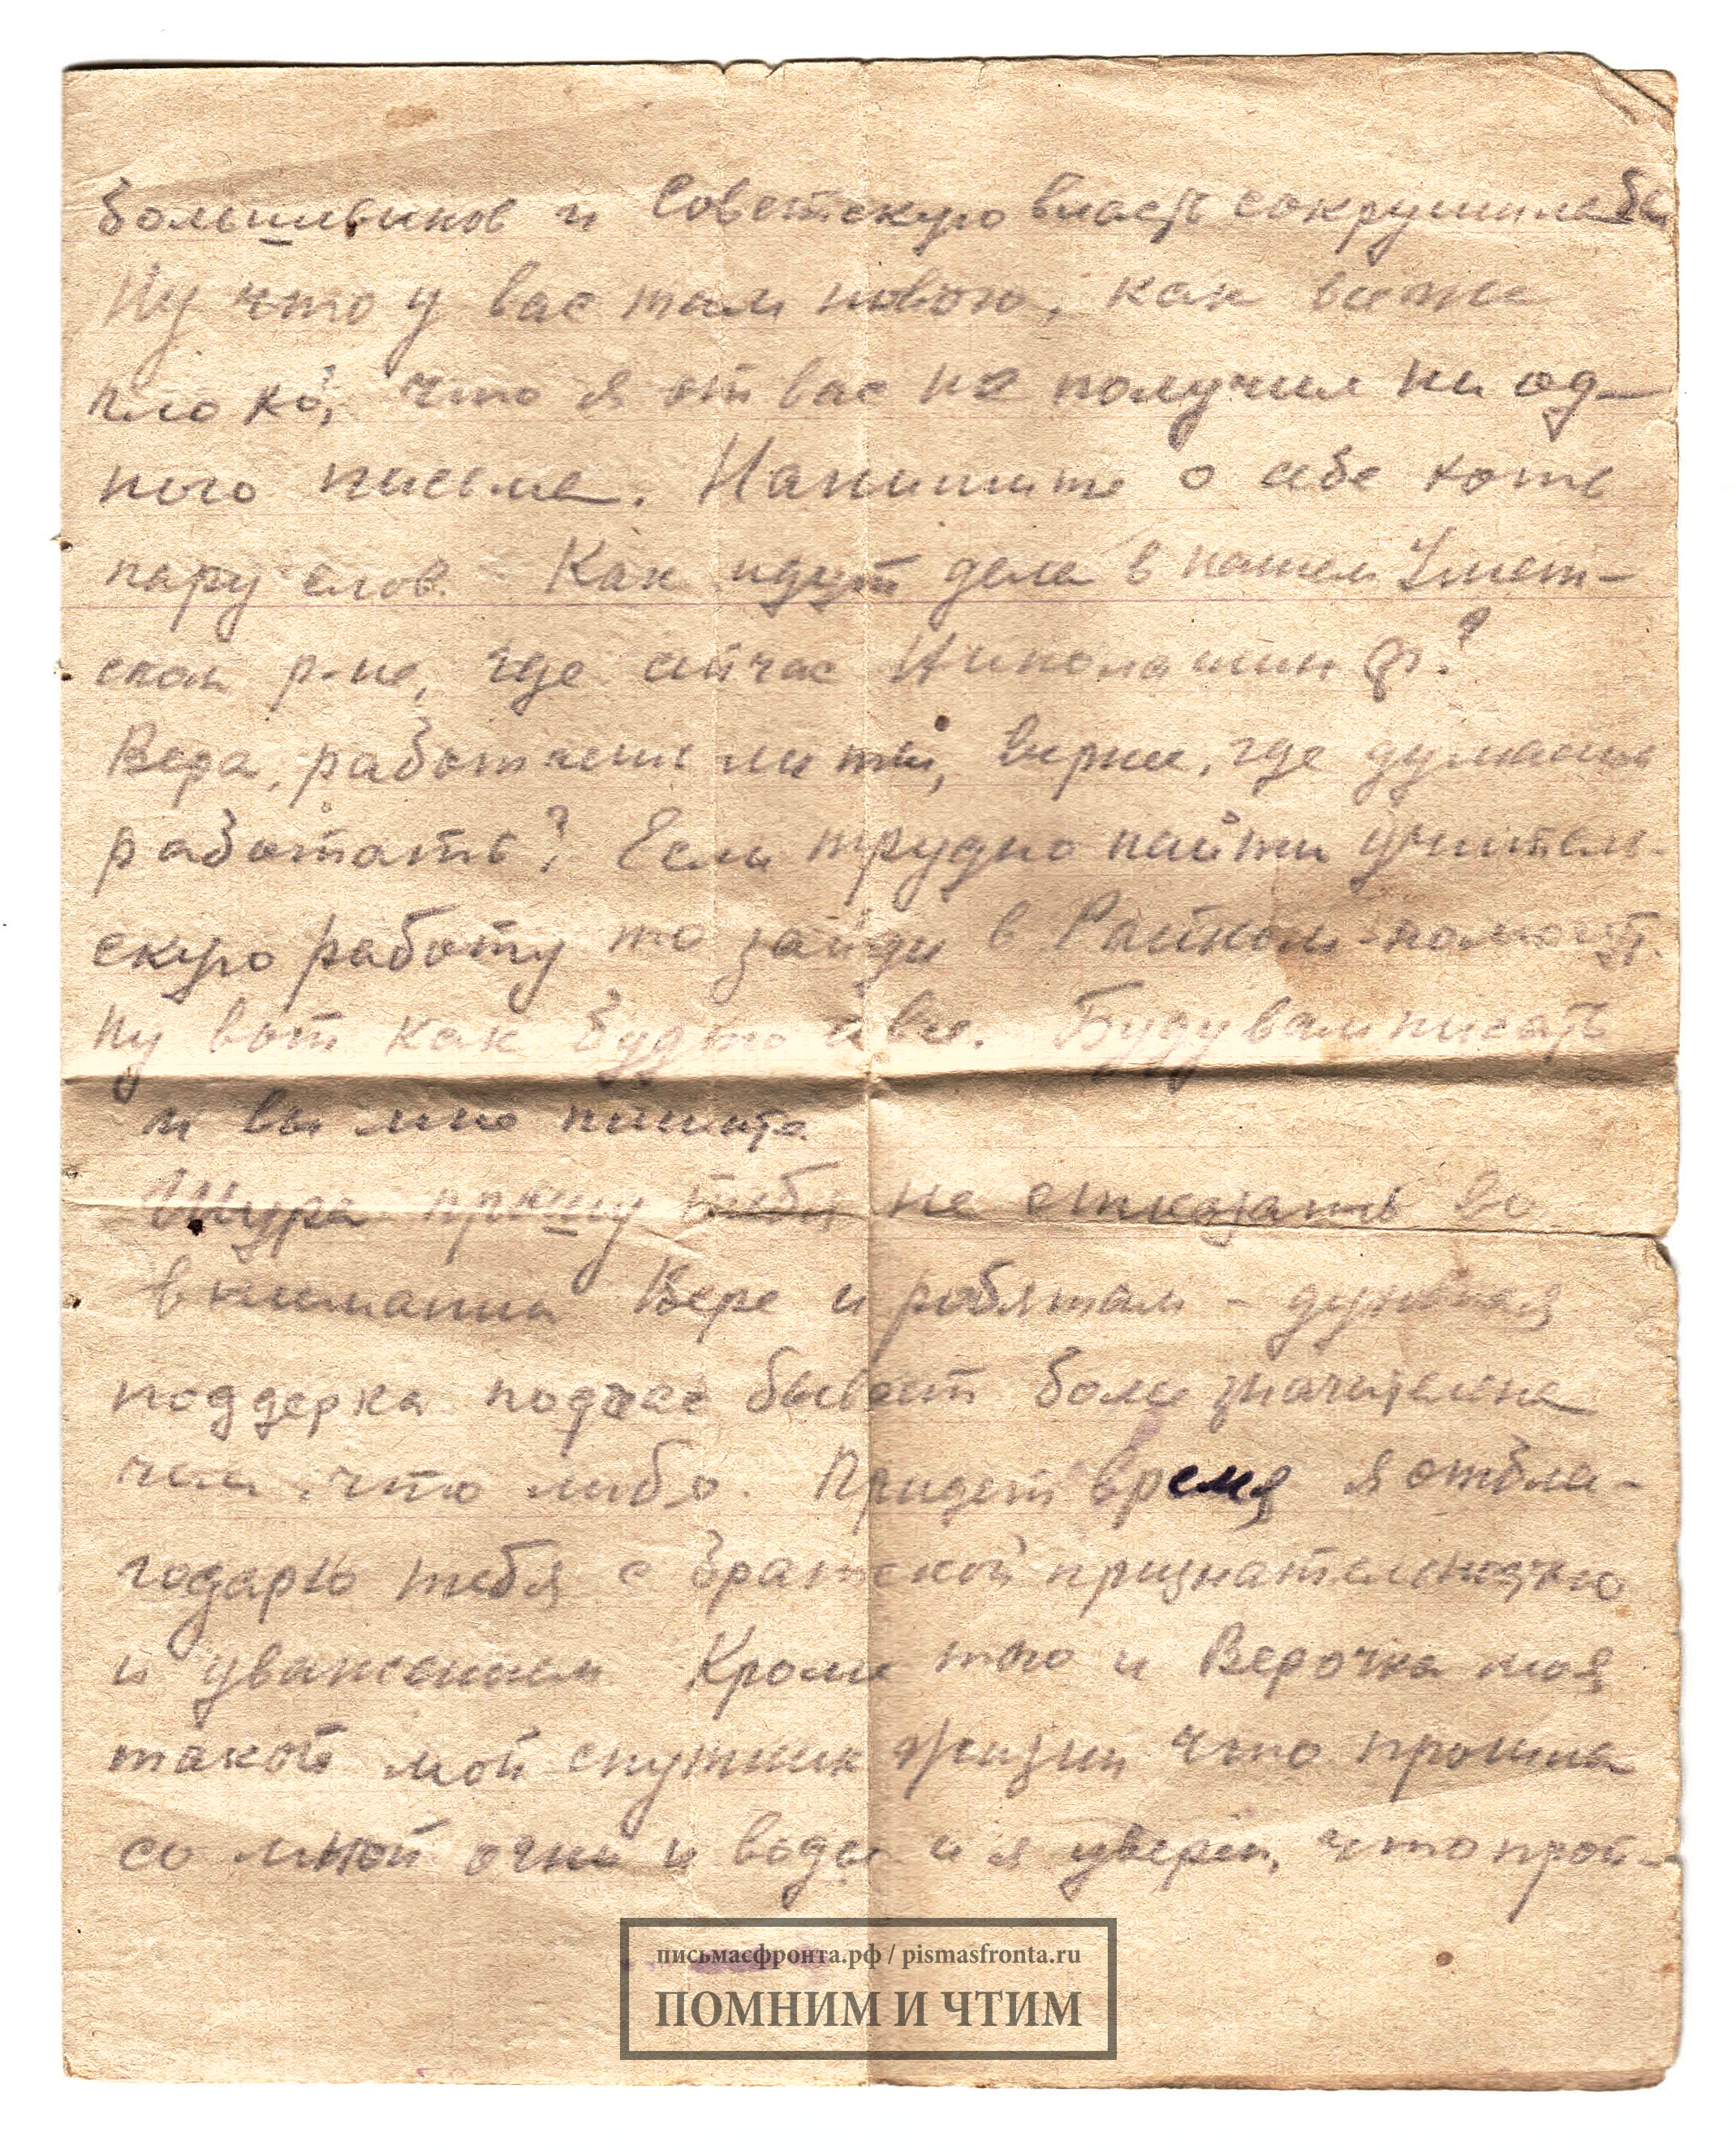 большевиков и Советскую власть сокрушила бы
Ну что у вас там нового, как все же
плохо, что я от вас не получил ни од-
ного письма. Напишите о себе хоть
пару слов. Как идут дела в нашем Умет-
ском р-не, где сейчас Николашин ?
Вера, работаешь ли ты, вернее, где думаешь
работать? Если трудно найти учитель-
скую работу то зайди в Райком-помогут.
Ну вот как будто и все. Буду вам писать
и вы мне пишите
Шура прошу тебя не отказать во
внимании Вере и робятам - духовная
поддерка подчас бывает более значительна
чем что либо. Придет время я отбла-
годарю тебя с братской признательностью
и уважением Кроме того и Верочка моя
такой мой спутник жизни что прошла
со мной огни и воды и я уверен, что прой-
письмасфронта.рф / pismasfronta.ru
ПОМНИМ И ЧТИМ